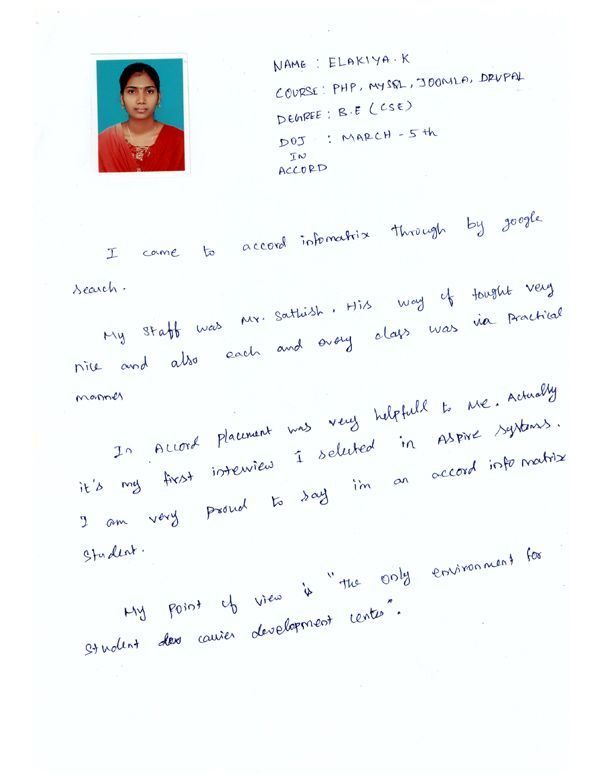 NAME : ELAKIYA.K
COURSE: PHP, MYSQL, JOOMLA, DRUPAL
DEGREE : B.E (CSE)
DOJ : MARCH - 5th
IN
ACCORD
I came to accord infomatrix through by google
search.
My staff was Mr. Sathish. His way of tought very
nice and also each and every class was via Practical
manner
In Accord placement was very helpfull to Me. Actually
it's my first interview I selected in Aspire systems.
I am very proud to say i'm an accord info matrix
Student.
My point of view is "the only environment for
Student carrier development center".